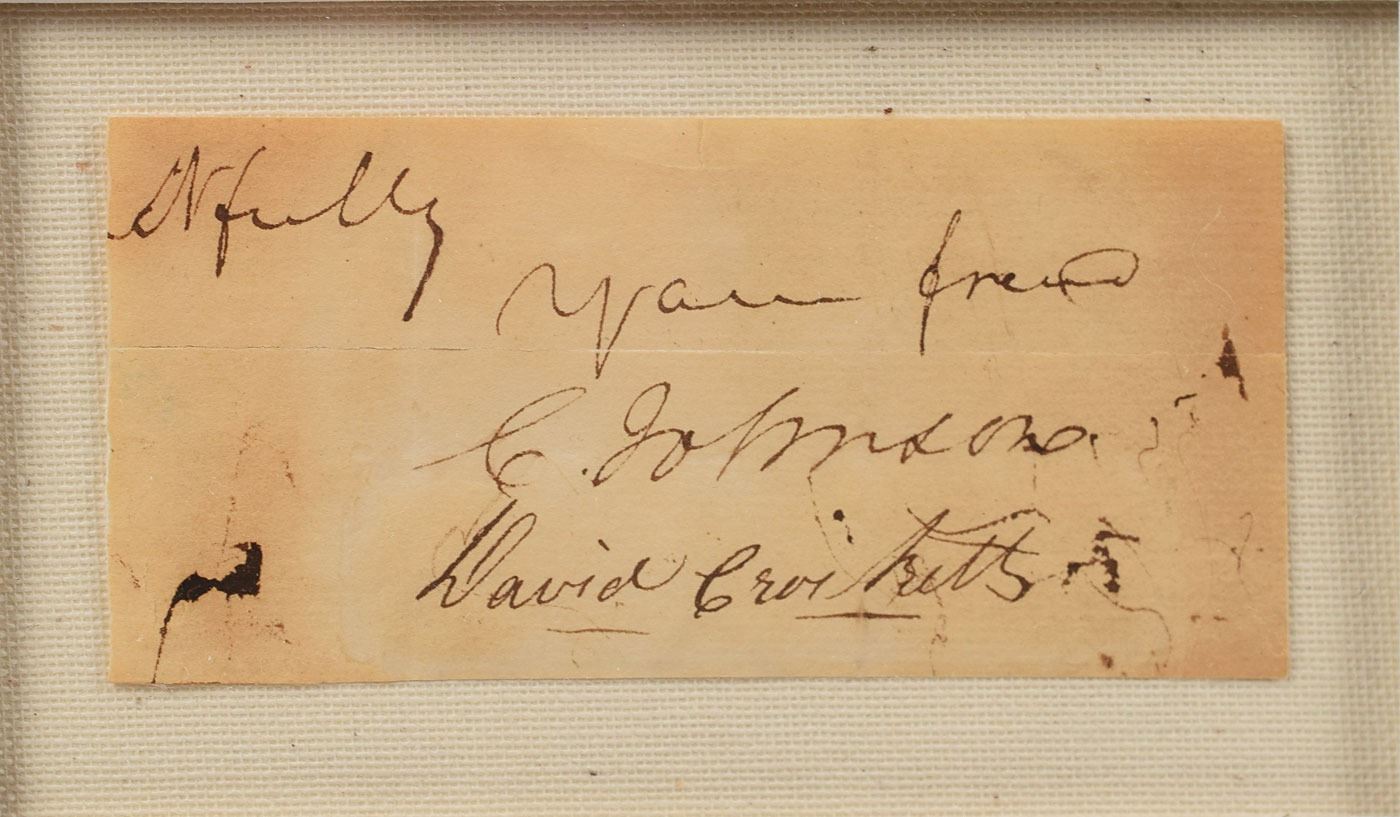 ctfully
your friend
C. Johnson
David Crockett